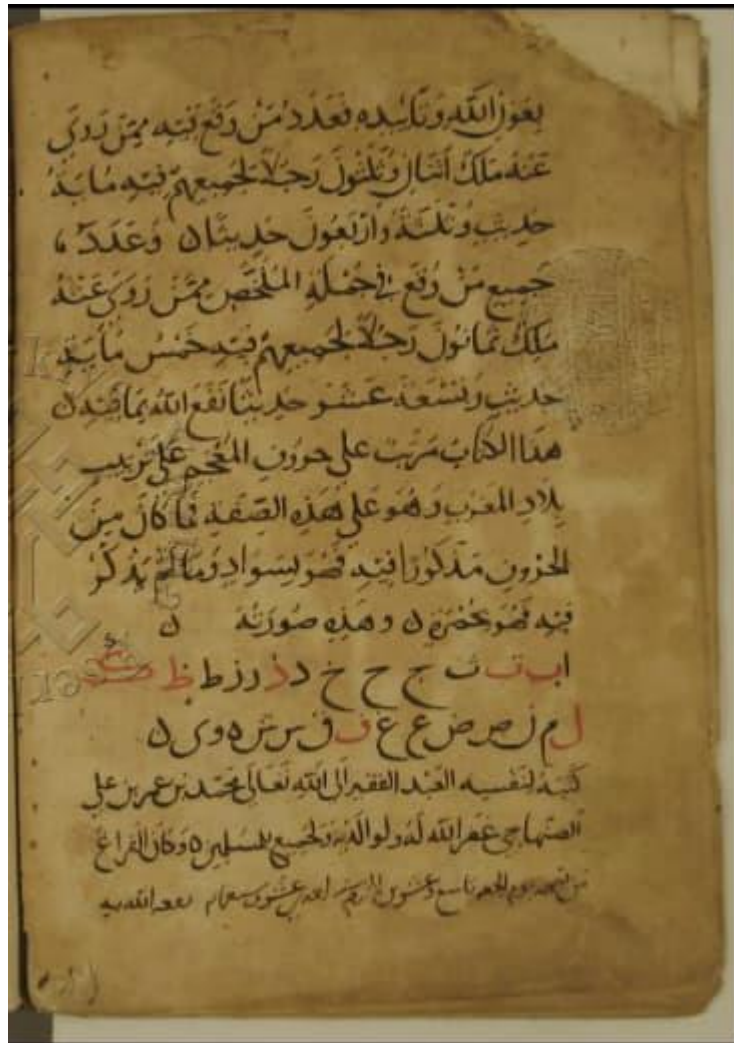 بعون الله وتأييده فعدد من وقع فيه ممن روى
عنه ملك اثنان وثلثون رجلا لجميعهم فيه مائة
حديث وثلثة واربعون حديثا ه وعدد
جميع من وقع في جملة الملخص ممن روى عنه
ملك ثمانون رجلا لجميعهم فيه خمس مائة
حديث وتسعة عشر حديثا نفع الله بما فيه ه
هذا الكتاب مرتب على حروف المعجم على ترتيب
بلاد المغرب وهو على هذه الصفة فما كان من
الحروف مذكورا فيه فهو بسواد وما لم يذكر
فيه فهو بحمرة ه وهذه صورته ه
ا ب ت ث ج ح خ د ذ ر ز ط ظ ك
ل م ن ص ض ع غ ف ق س ش ه و ى ه
كتبه لنفسه العبد الفقير الى الله تعالى محمد بن عمر بن علي
الصنهاجي غفر الله له ولوالديه ولجميع المسلمين ه وكان الفراغ
من يوم الجمعة تاسع وعشرين نفعه الله به